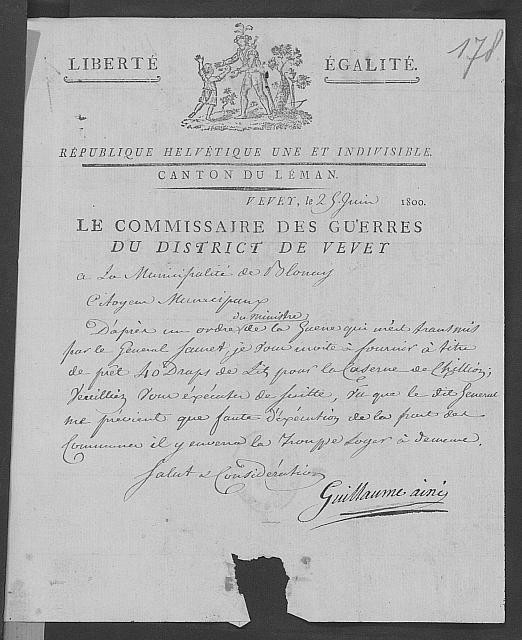 178
LIBERTÉ ÉGALITÉ.
RÉPUBLIQUE HELVÉTIQUE UNE ET INDIVISIBLE.
CANTON DU LÉMAN.
VEVEY, le 25 Juin 1800.
LE COMMISSAIRE DES GUERRES
DU DISTRICT DE VEVEY
a La Municipalité de Blonay
Citoyens Municipaux
du ministre
D'après un ordre de la Guerre qui m'est transmis
par le General je vous invite à fournir à titre
de prêt 40 Draps de Lits pour la Caserne de Chillion;
Veuilliez vous exécuter de suitte, vu que le dit General
me prévient que faute d'éxécution de la part des
Communes il y enverra la Trouppe Loger à demeure.
Salut & Considération
Guillaume ainé